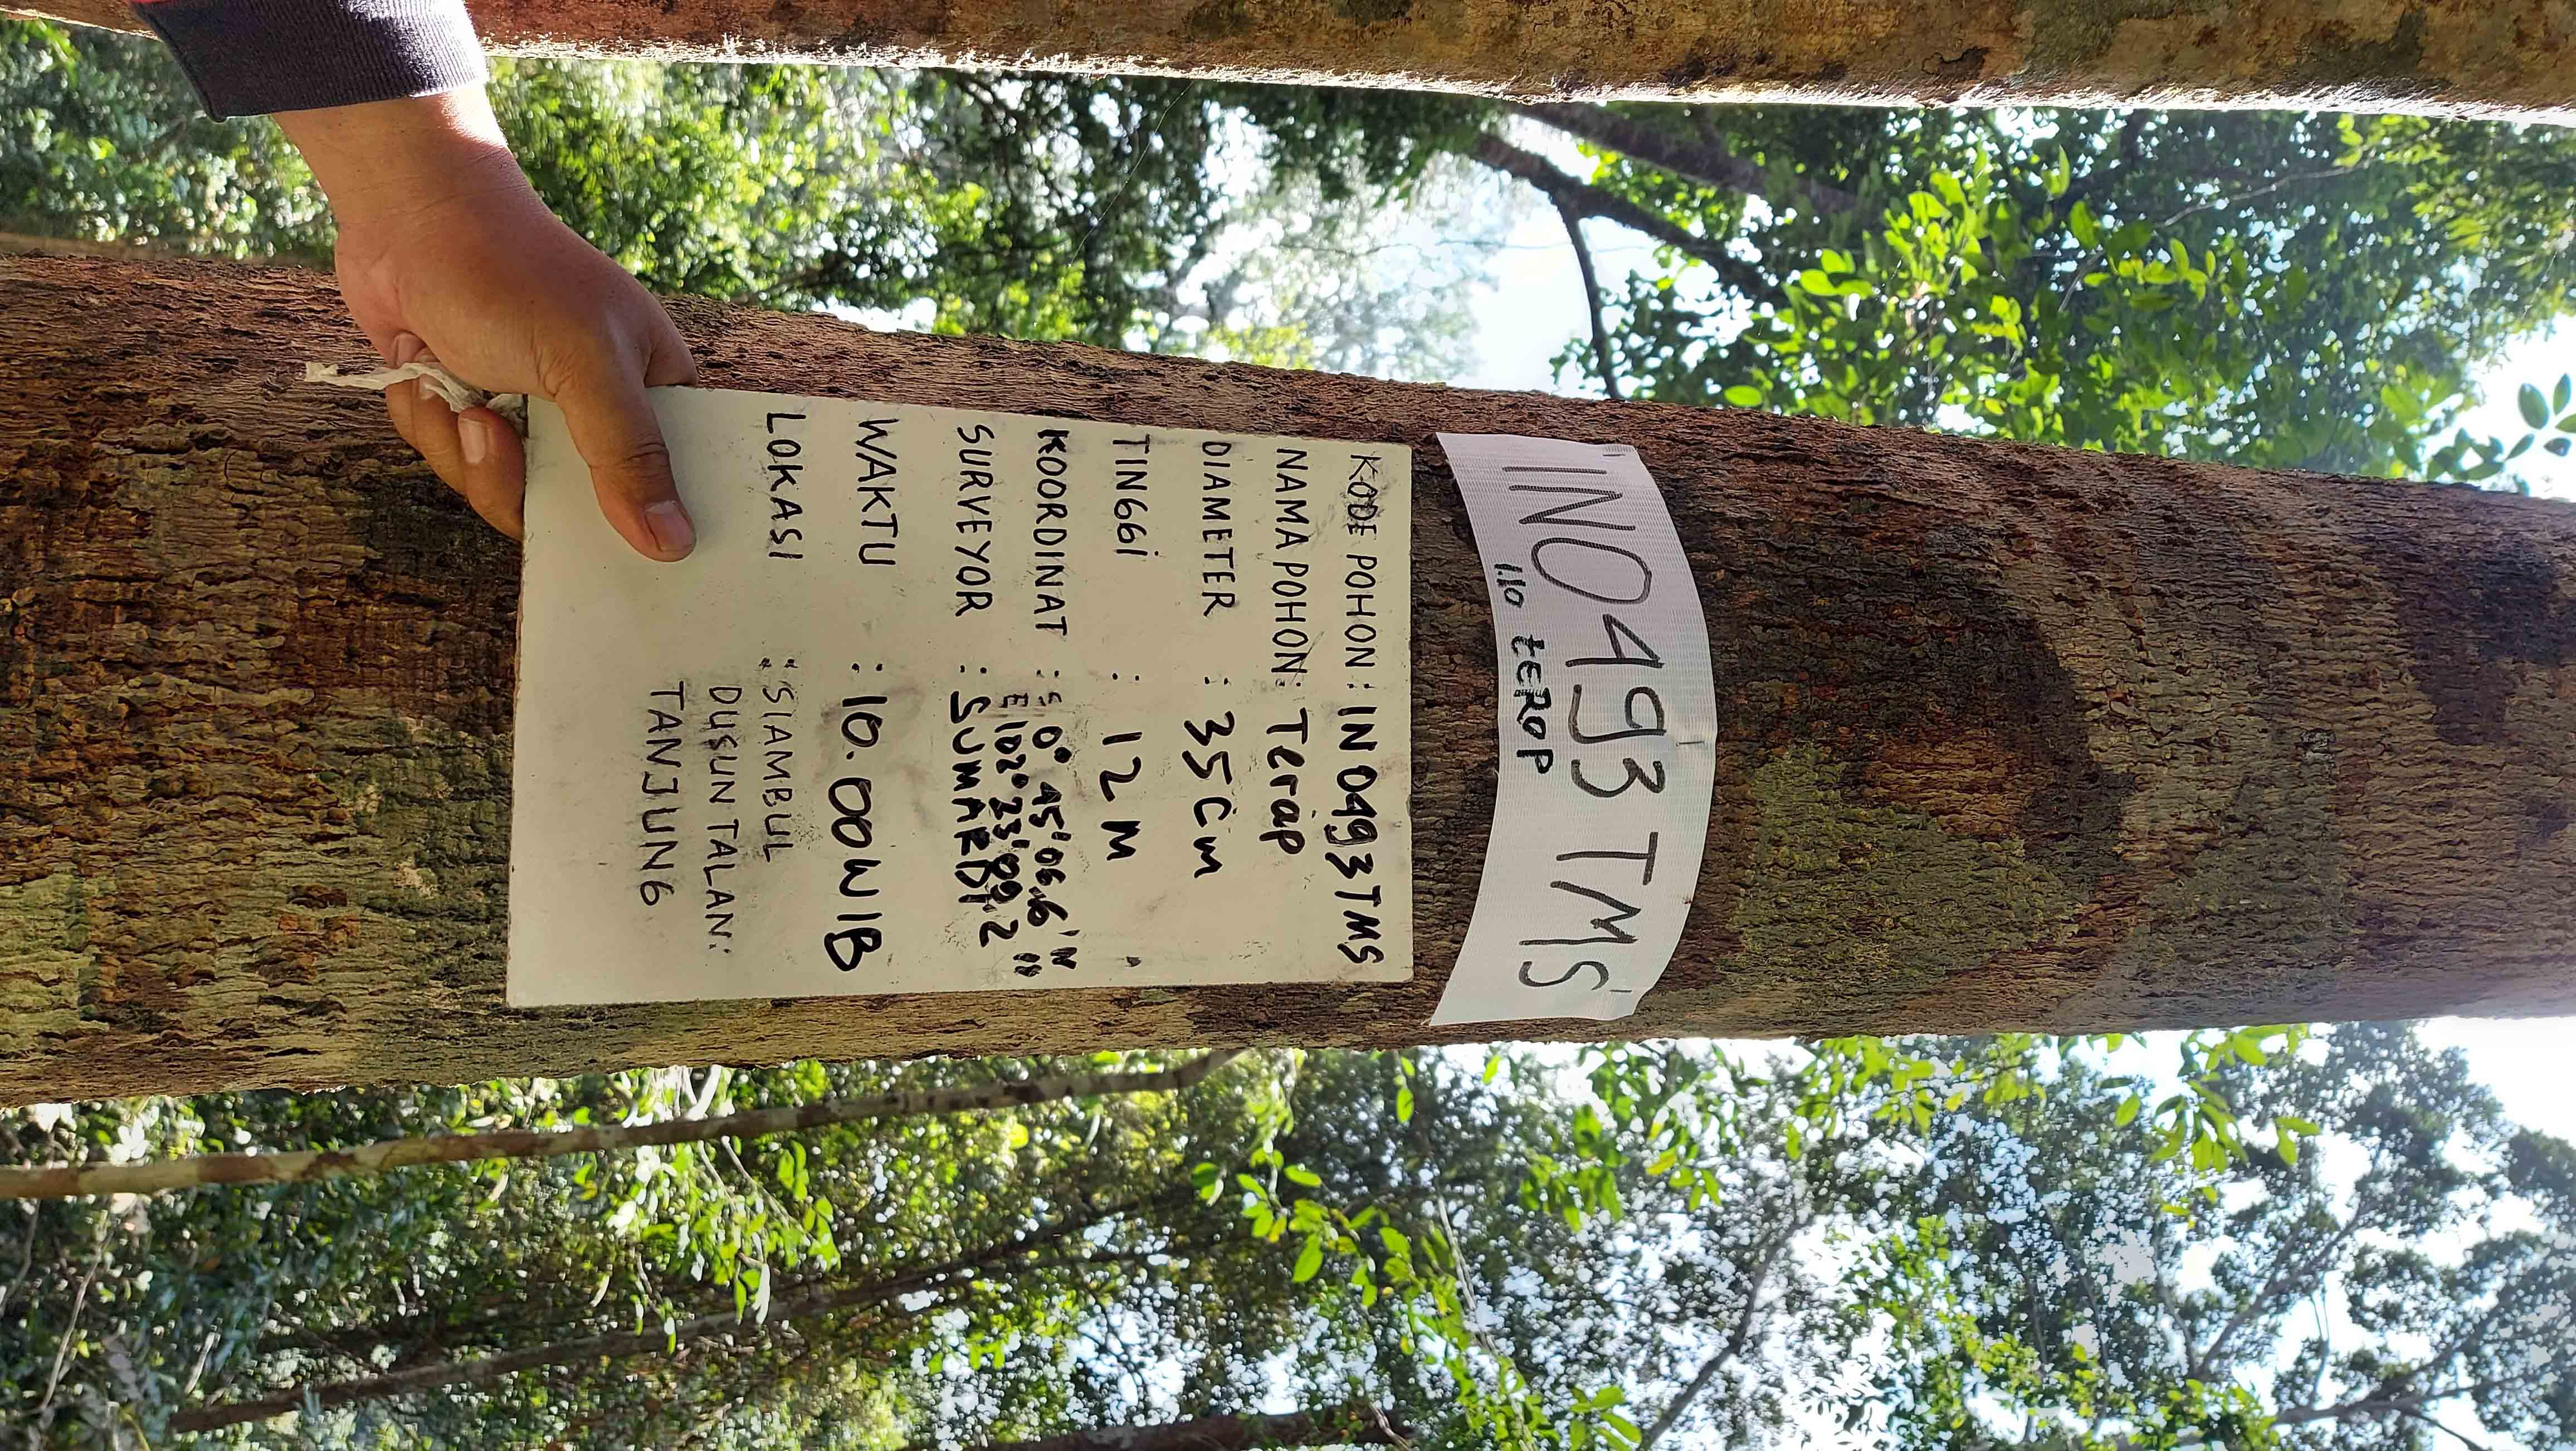 IN0493 TMS
1.10 tEROP
KODE POHON : IN 0493 TMS
NAMA POHON : Terap
DIAMETER : 35 Cm
TINGGi : 12 M
KOORDINAT : S 0° 45' 06,6"
E 102° 23' 09.2"
SURVEYOR : SUMARDI
WAKTU : 10.00 WIB
LOKASI : SIAMBUL
DUSUN TALAN:
TANJUNG